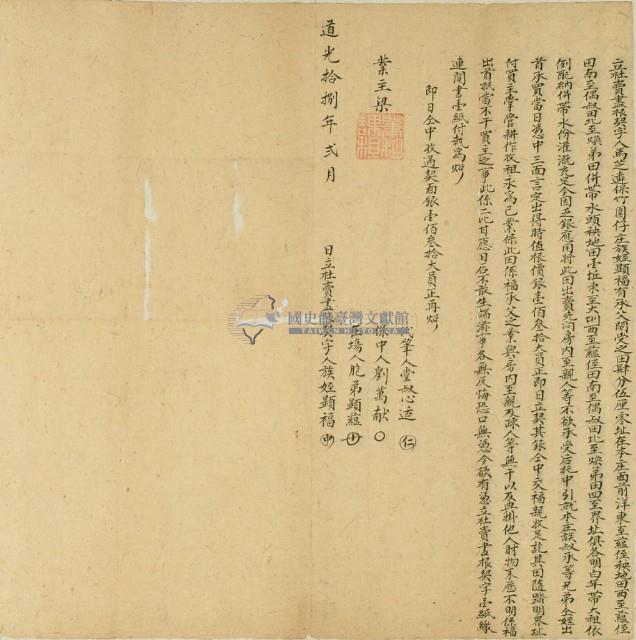 立杜賣盡根契字人馬芝遴保竹圍仔庄族姪顯福有承父鬮受之田肆分伍厘零址在本庄面前洋東至蘊侄秧地田西至蘊侄
田南至偶叔田北至煥弟田併帶水頭秧地田壹坵東至大圳西至蘊侄田南至偶叔田北至煥弟田四至界址俱各明白年帶大租依
例配納併帶水份灌溉充足今因乏銀應用將此田出賣先問房内至親人等不欲承受后托中引就本庄族叔承等兄弟仝姪出
首承買當日憑中三面言定出得時值根價銀壹佰叁拾大員正即日立契其銀仝中交福親收足訖其田隨踏明界址
付買主掌管耕作收租永為己業保此田係福承父之業與房内至親及疎人等無干以及典掛他人財物來歷不明係福
出首抵當不干買主之事此係二比甘愿日后不敢生端滋事各無反悔恐口無憑今欲有憑立杜賣盡根契字壹紙繳
連鬮書壹紙付執為炤
即日仝中收過契面銀壹佰叁拾大員正再炤
代筆人堂叔心造
業主梁
保中人劉萬献
在場人胞弟顯蘊
道光拾捌年弍月 日立杜賣盡根契字人族姪顯福
國史館臺灣文獻館
TAIWAN HISTORICA